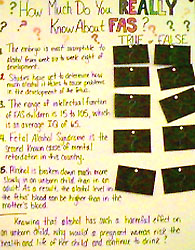 ? How Much Do You REALLY ?
Know About FAS?
TRUE FALSE
1. The embryo is most susceptible to
alcohol from week up to week eight of
development.
2. Studies have yet to determine how
much alcohol it takes to cause problems
in the development of the fetus.
3. The range of intellectual function
of FAS children is 15 to 105, which
is an average IQ of 65.
4. Fetal Alcohol Syndrome is the
second known cause of mental
retardation in this country.
5. Alcohol is broken down much more
slowly in an unborn child than in an
adult. As a result, the alcohol level in
the fetal blood can be higher than in the
mother's blood.
Knowing that alcohol has such a harmful effect on
an unborn child, why would a pregnant woman risk the
health and life of her child and continue to drink?